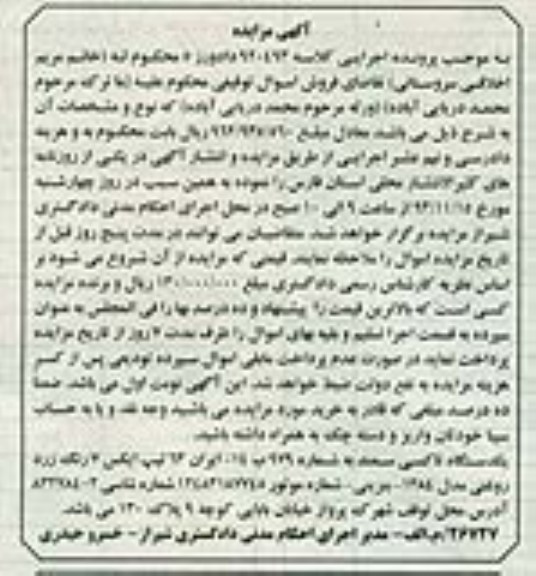 آگهی مزایده
به موجب پرونده اجرایی کلاسه ۹۲۰۴۹۳ دادورز ۵ محکوم لـه (خانم مریم
اخلاقی سروستانی) تقاضای فروش اموال توقیفی محکوم علیه (ما ترک مرحوم
محمد دریایی آباده) (ورثه مرحوم محمد دریایی آباده) که نوع و مشخصات آن
به شرح ذیل می باشد معادل مبلغ ریال بابت محکوم به و هزینه
دادرسی و نیم عشر اجرایی از طریق مزایده و انتشار آگهی در یکی از روزنامه
های کثیرالانتشار محلی استان فارس را نموده به همین سبب در روز چهارشنبه
مورخ ۹۳/۱۱/۱۵ از ساعت ۹ الی ۱۰ صبح در محل اجرای احکام مدنی دادگستری
شیراز مزایده برگزار خواهد شد. متقاضیان می توانند در مدت پنج روز قبل از
تاریخ مزایده اموال را ملاحظه نمایند. قیمتی که مزایده از آن شروع می شود بر
اساس نظریه کارشناس رسمی دادگستری مبلغ ۱۳۰/۰۰۰/۰۰۰ ریال و برنده مزایده
کسی است که بالاترین قیمت را پیشنهاد و ده درصد بها را فی المجلس به عنوان
سپرده به قسمت اجرا تسلیم و بقیه بهای اموال را ظرف مدت روز از تاریخ مزایده
پرداخت نماید در صورت عدم پرداخت مابقی اموال سپرده تودیعی پس از کسر
هزینه مزایده به نفع دولت ضبط خواهد شد. این آگهی نوبت اول می باشد. ضمنا
ده درصد مبلغی که قادر به خرید مورد مزایده می باشید وجه نقد و یا به حساب
سیبا خودتان واریز و دسته چک به همراه داشته باشید.
یکدستگاه تاکسی سمند به شماره ۹۷۹ ت ۱۴ ایران ۹۳ تیپ ایکس ۷ رنگ زرد
روغنی مدل ۱۳۸۴- بنزینی- شماره موتور شماره شاسی
آدرس محل توقف شهرک پرواز خیابان بابایی کوچه ۹ پلاک ۱۳۰ می باشد.
۲۶۷۲۷/م الف- مدیر اجرای احکام مدنی دادگستری شیراز- خسرو حیدری